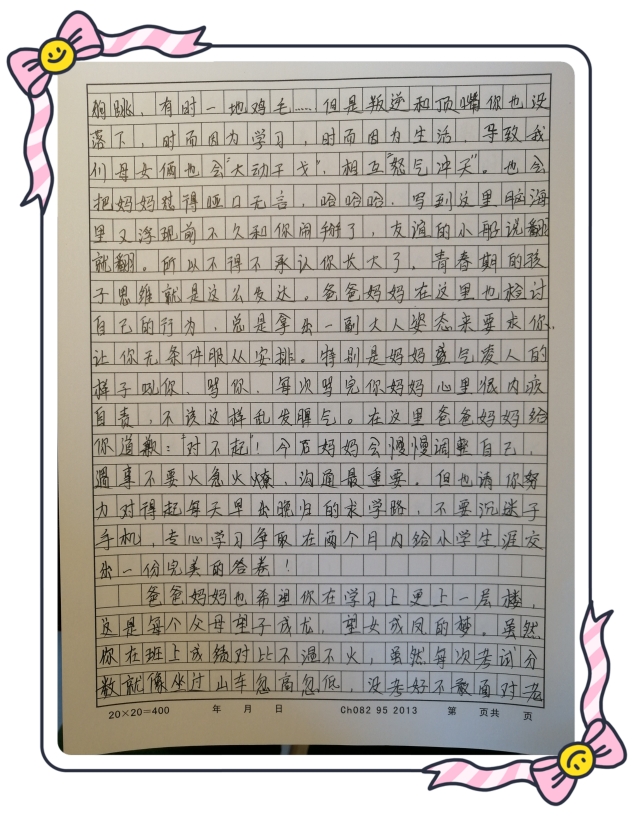 狗跳、有时一地鸡毛……但是叛逆和顶嘴你也没
落下，时而因为学习，时而因为生活，导致我
们母女俩也会"大动干戈"，相互"怒气冲天"。也会
把妈妈怼得哑口无言，哈哈哈，写到这里脑海
里又浮现前不久和你闹掰了，友谊的小船说翻
就翻。所以不得不承认你长大了。青春期的孩
子思维就是这么发达。爸爸妈妈在这里也检讨
自己的行为，总是拿出一副大人姿态来要求你、
让你无条件服从安排。特别是妈妈盛气凌人的
样子吼你、骂你、每次骂完你妈妈心里很内疚
自责，不该这样乱发脾气。在这里爸爸妈妈给
你道歉："对不起"！今后妈妈会慢慢调整自己，
遇事不要火急火燎，沟通最重要。但也请你努
力对得起每天早出晚归的求学路，不要沉迷于
手机，专心学习争取在两个月内给小学生涯交
出一份完美的答卷！
爸爸妈妈也希望你在学习上更上一层楼，
这是每个父母望子成龙，望女成凤的梦。虽然
你在班上成绩对比不温不火，虽然每次考试分
数就像坐过山车忽高忽低，没考好不敢面对老
20×20=400 年 月 日 Ch082 95 2013 第 页共 页